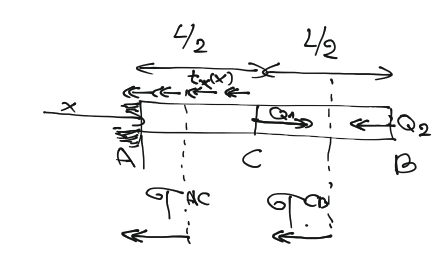 L/2 L/2
tx(x)
x Q1 Q2
A C B
σAC σCB